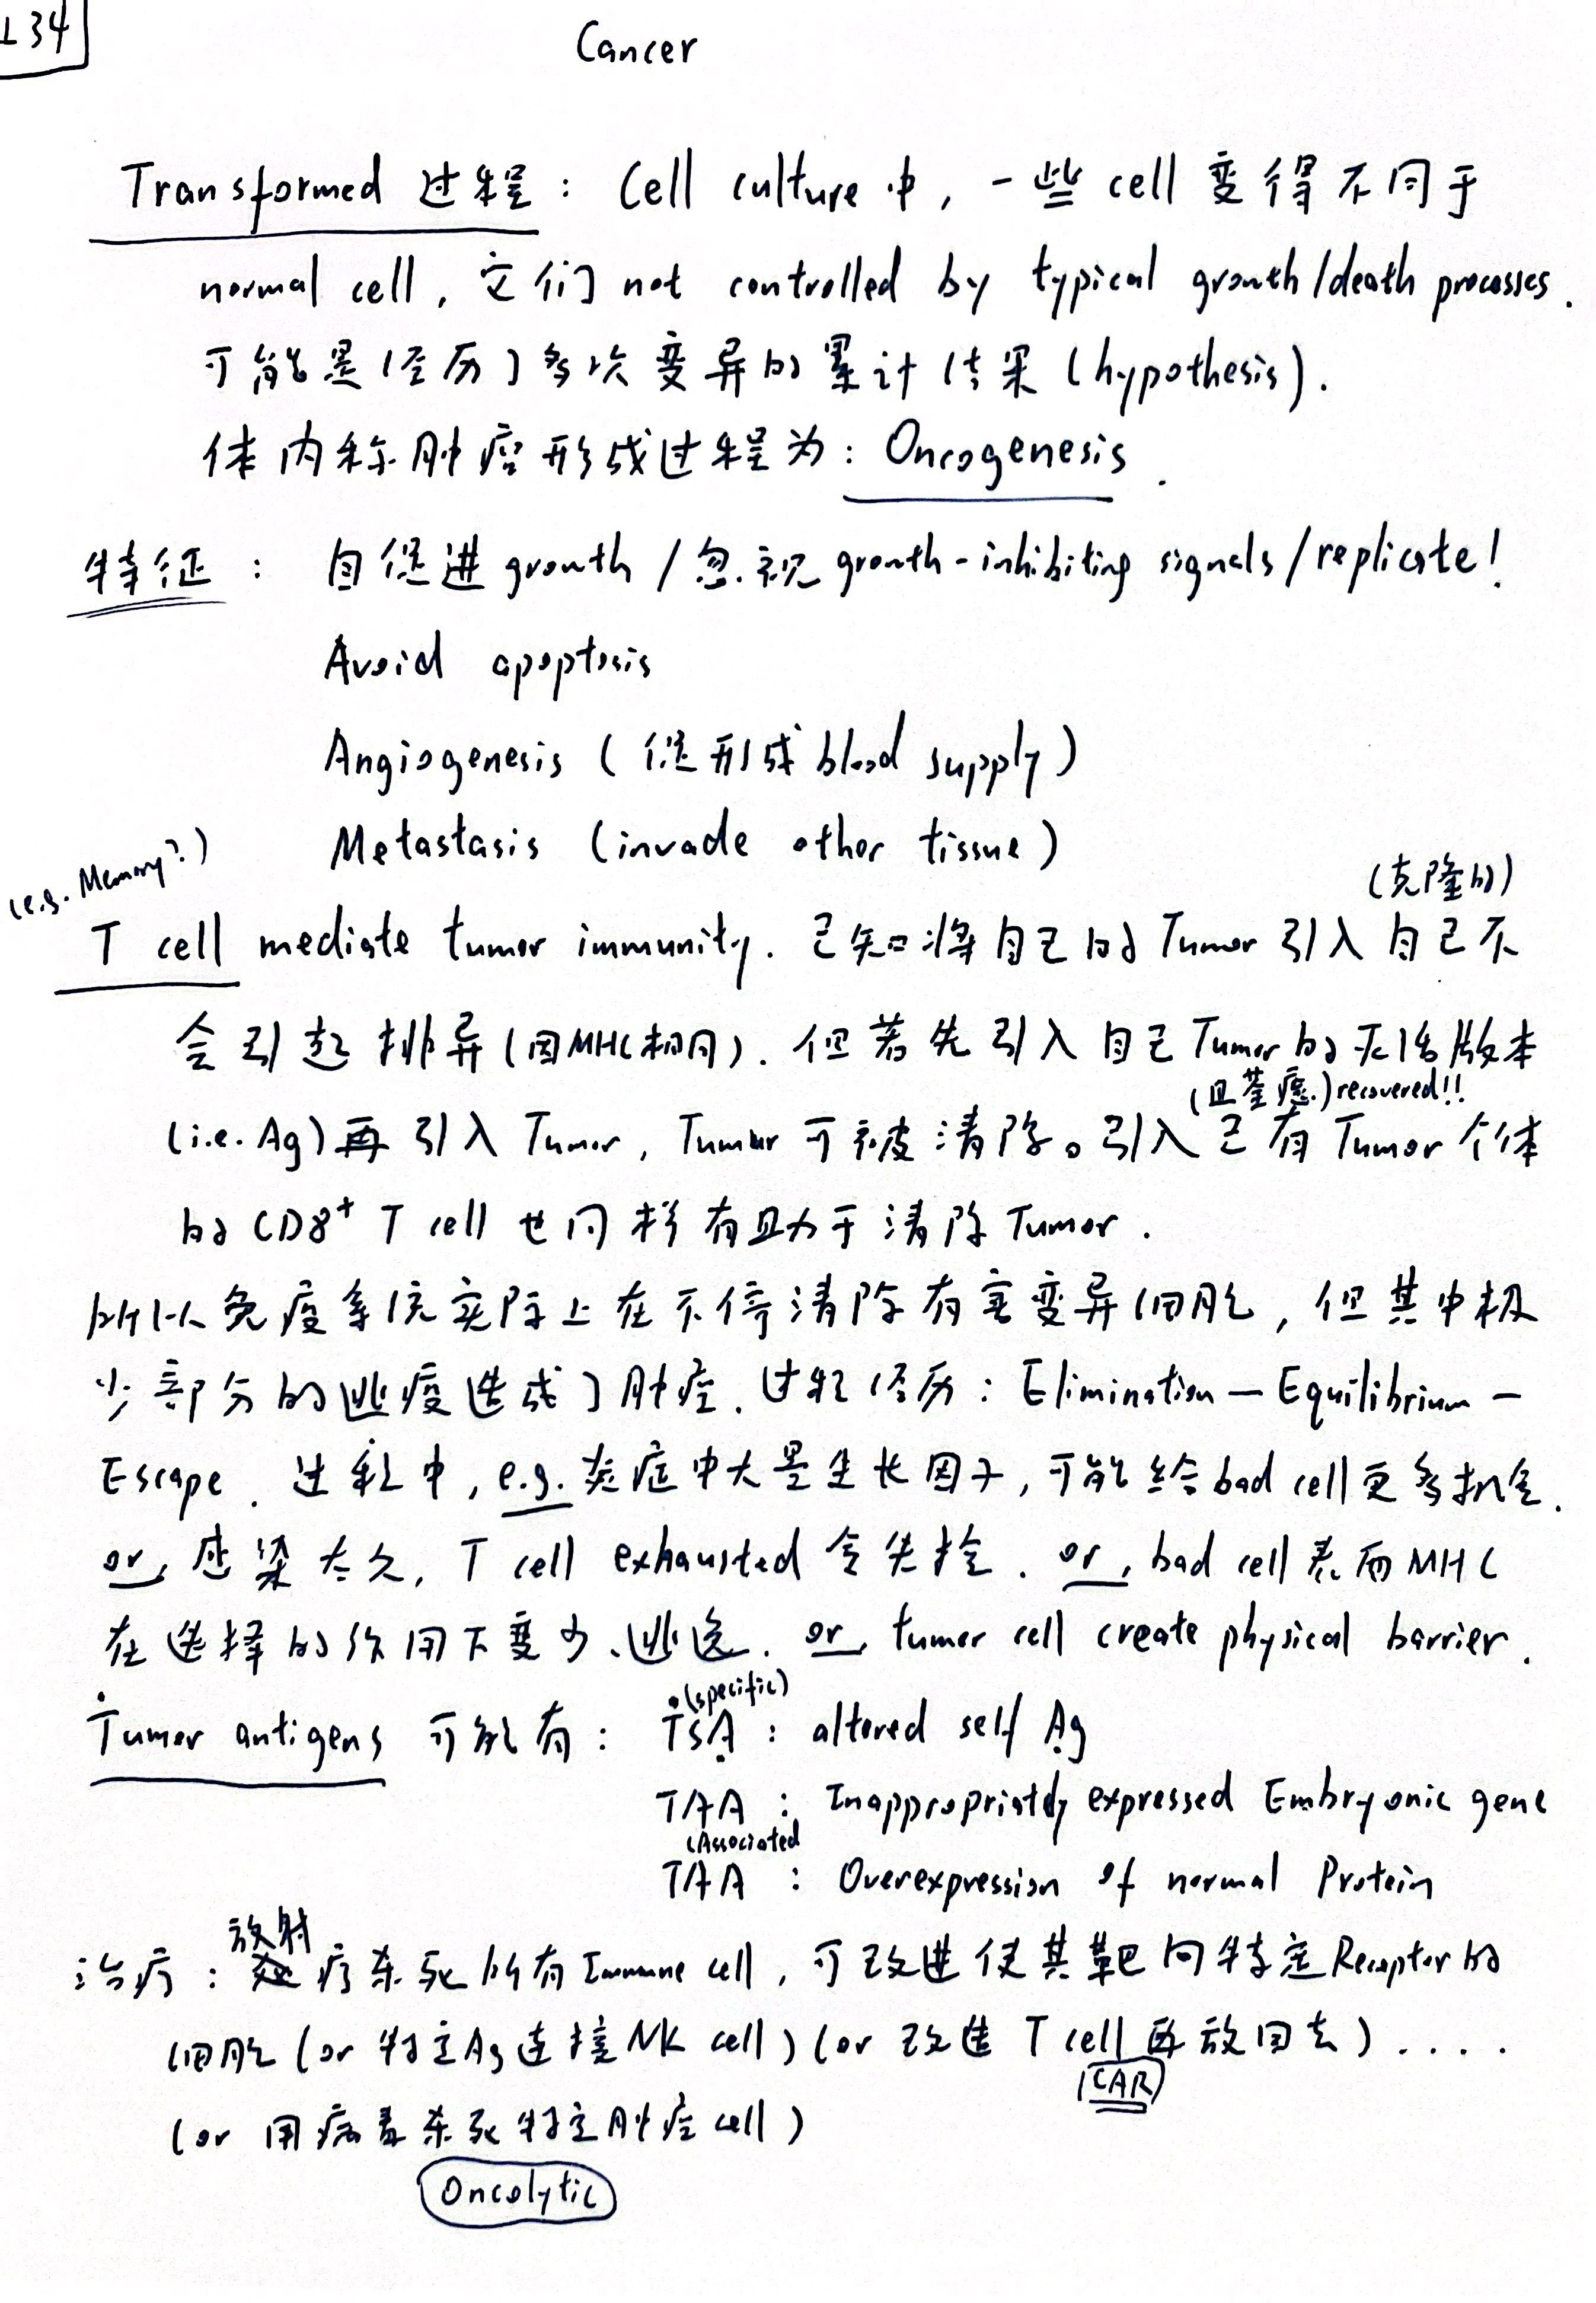 L34
Cancer
Transformed 过程: Cell culture 中, 一些 cell 变得不同于
normal cell, 它们 not controlled by typical growth/death processes.
可能是经历了多次变异的累计结果 (hypothesis).
体内称肿瘤形成过程为: Oncogenesis.
特征: 自促进 growth / 忽视 growth-inhibiting signals / replicate!
Avoid apoptosis
Angiogenesis (促形成 blood supply)
Metastasis (invade other tissue)
(e.g. Memory?)
(克隆的)
T cell mediate tumor immunity. 已知将自己的 Tumor 引入自己不
会引起排异 (因MHC相同). 但若先引入自己 Tumor 的灭活版本
(且荃癒.) recovered!!
(i.e. Ag) 再引入 Tumor, Tumor 可被清除。引入已有 Tumor 个体
的 CD8+ T cell 也同样有助于清除 Tumor.
所以免疫系统实际上在不停清除有害变异细胞, 但其中极
少部分的逃疫造成了肿瘤. 过程经历: Elimination — Equilibrium —
Escape. 过程中, e.g. 炎症中大量生长因子, 可能给 bad cell 更多机会.
or, 感染太久, T cell exhausted 会失控. or, bad cell 表面 MHC
在选择的作用下变少、逃逸. or, tumor cell create physical barrier.
(specific)
Tumor antigens 可能有: TSA: altered self Ag
TAA: Inappropriately expressed Embryonic gene
(Associated
TAA: Overexpression of normal Protein
放射
治疗: 疗杀死所有 Immune cell, 可改进使其靶向特定 Receptor 的
细胞 (or 特定Ag连接 NK cell) (or 改造 T cell 再放回去) ....
(CAR)
(or 用病毒杀死特定肿瘤 cell)
Oncolytic